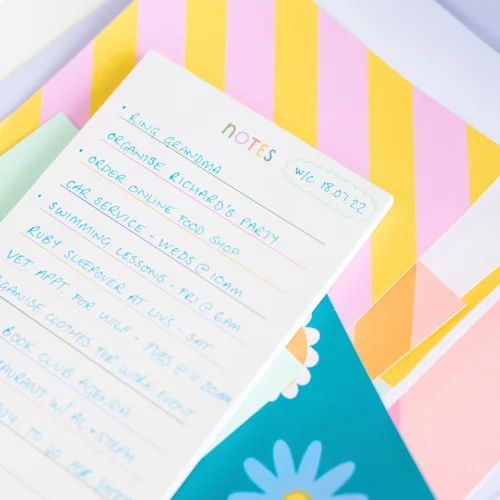 NOTES
W/C 18.07.22
• RING GRANDMA
ORGANISE RICHARD'S PARTY
• ORDER ONLINE FOOD SHOP
CAR SERVICE - WEDS @ 10AM
• SWIMMING LESSONS - FRI @ 6AM
RUBY SLEEPOVER AT LIV'S - SAT
VET APPT. FOR WILF - TUES @ 11:30AM
CLOTHES FOR WORK EVENT
BOOK CLUB AGENDA
W/ AL + STEPH
TO GO FOR